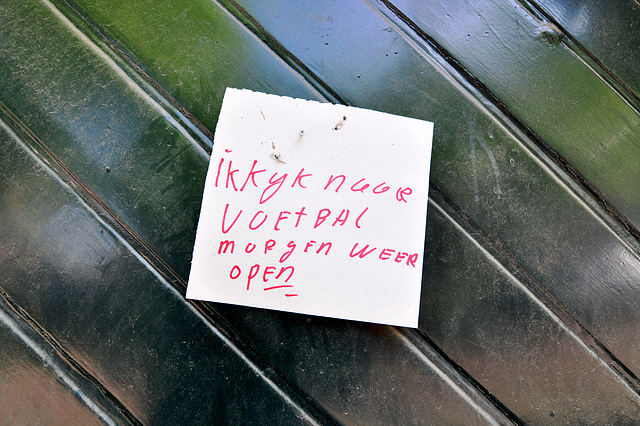 ikkyk naar
VOEtBAL
morgen weer
open